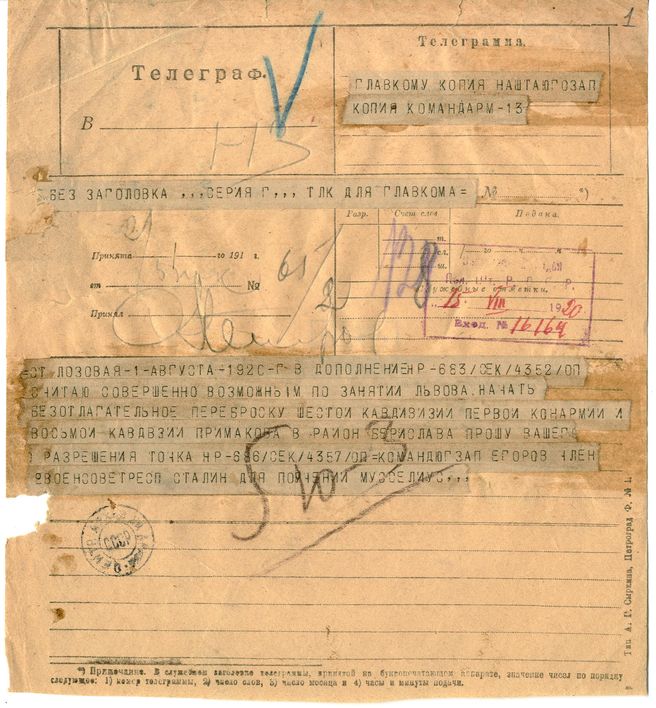 1
Телеграф.
В
Н3
Телеграмма.
ГЛАВКОМУ КОПИЯ НАШТАЮГОЗАП
КОПИЯ КОМАНДАРМ-13
БЕЗ ЗАГОЛОВКА ,,,СЕРИЯ Г,,, ТЛК ДЛЯ ГЛАВКОМА=
№ *)
Разр.
Счет слов
Подана.
Принята го 191 г.
от №
Принял
т.
128
Служебные отметки.
15 VIII 1920
Вход. № 16164
СТ ЛОЗОВАЯ-1-АВГУСТА-1920-Г В ДОПОЛНЕНИЕ НР-683/СЕК/4352/ОП
СЧИТАЮ СОВЕРШЕННО ВОЗМОЖНЫМ ПО ЗАНЯТИИ ЛЬВОВА НАЧАТЬ
БЕЗОТЛАГАТЕЛЬНОЕ ПЕРЕБРОСКУ ШЕСТОЙ КАВДИВИЗИИ ПЕРВОЙ КОНАРМИИ И
ВОСЬМОЙ КАВДВЗИИ ПРИМАКОВА В РАЙОН БЕРИСЛАВА ПРОШУ ВАШЕГО
РАЗРЕШЕНИЯ ТОЧКА НР-686/СЕК/4357/ОП=КОМАНДЮГЗАП ЕГОРОВ ЧЛЕН
РВОЕНСОВЕТРЕСП СТАЛИН ДЛЯ ПОРУЧЕНИЙ МУССЕЛИУС,,,
СССР
Тип. А. П. Сыркина, Петроград Ф. № 1.
*) Примечание. В служебном заголовке телеграммы, принятой на буквопечатающем аппарате, значение чисел по порядку
следующее: 1) номер телеграммы, 2) число слов, 3) число месяца и 4) часы и минуты подачи.